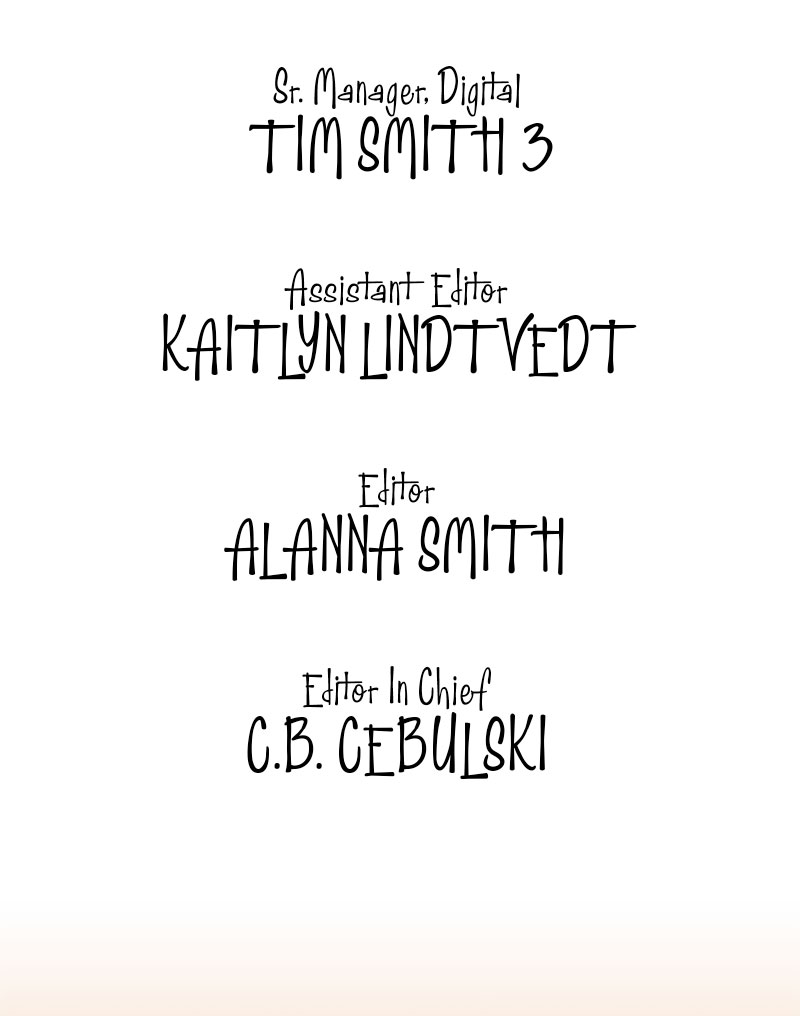 Sr. Manager, Digital
TIM SMITH 3
Assistant Editor
KAITLYN LINDTVEDT
Editor
ALANNA SMITH
Editor In Chief
C.B. CEBULSKI